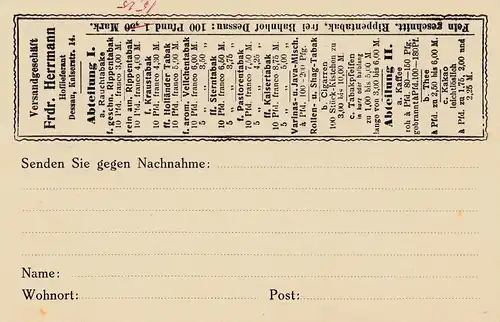 Versandgeschäft
Frdr. Herrmann
Hoflieferant
Dessau, Kaiserstr. 14.
Abteilung I.
a. Rauchtabake
f. geschn. Rippentabak
10 Pfd. franco 3,00 M.
rein am. Rippentabak
10 Pfd. franco 4,00 M.
f. Kraustabak
10 Pfd. franco 5,00 M.
ff. Holländer Tabak
10 Pfd. franco 5,50 M.
f. arom. Veilchentabak
10 Pfd. franco 6,00 M.
5 „ „ 3,50 „
f. Sterntabak
10 Pfd. franco 6,50 M.
5 „ „ 3,75 „
f. Pastorentabak
10 Pfd. franco 7,50 M.
5 „ „ 4,25 „
ff. Kaisertabak
10 Pfd. franco 9,00 M.
5 „ „ 5,00 „
Varinas- u. Java-Misch.
à Pfd. 100-200 Pfg.
Rollen- u. Shag-Tabak
b. Cigarren
100 Stück-Kistchen zu
3,00 bis 10,00 M.
c. Tabakspfeifen
in kurz oder halblang
zu 1,00 bis 5,00 M.
lange von 3,00 bis 6,00 M.
Abteilung II.
a. Kaffee
roh à Pfd. 80-150 Pfg.
gebrannt à Pfd. 100-180 Pf.
b. Thee
à Pfd. 2,50 bis 6,00 M.
c. Kakao
leichtlöslich
à Pfd. 1,75, 2,00 und
2,25 M.
Fein geschnitt. Rippentabak, frei Bahnhof Dessau: 100 Pfund Mark.
Senden Sie gegen Nachnahme:
Name:
Wohnort: Post: